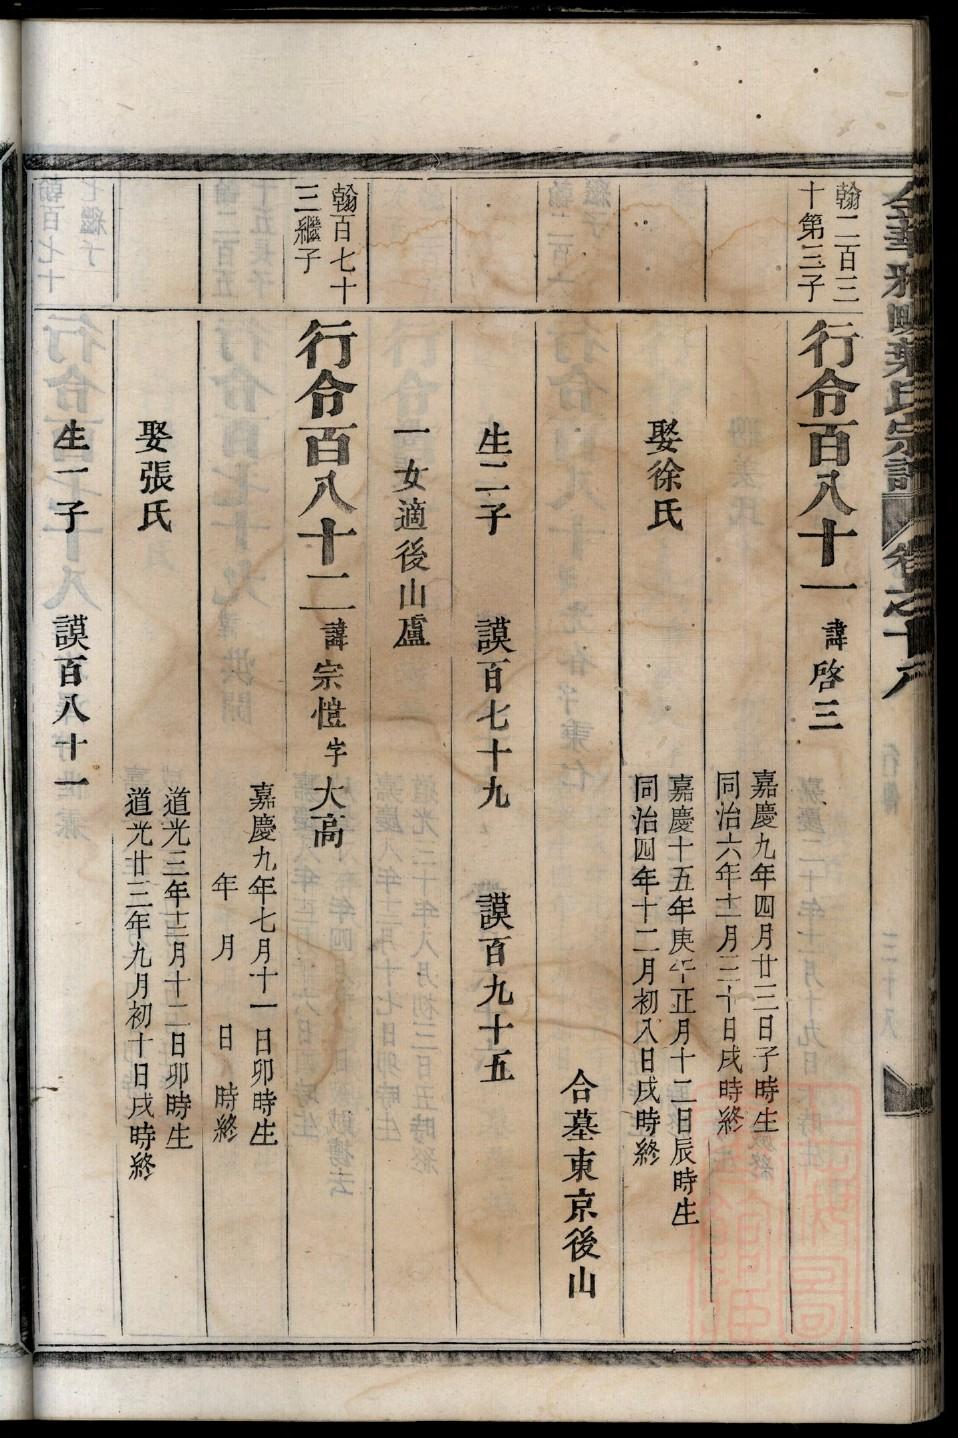 金華雅畈葉氏宗譜 卷之十八 行傳 三十八
翰二百三
十第三子
行令百八十一 諱啓三
嘉慶九年四月廿三日子時生
同治六年十二月三十日戌時終
娶徐氏
嘉慶十五年庚午正月十二日辰時生
同治四年十二月初八日戌時終
合墓東京後山
生二子 謨百七十九 謨百九十五
一女適後山盧
翰百七十
三繼子
行令百八十二 諱宗愷字大高
嘉慶九年七月十一日卯時生
年 月 日 時終
娶張氏
道光三年十二月十二日卯時生
道光廿三年九月初十日戌時終
生一子 謨百八十一